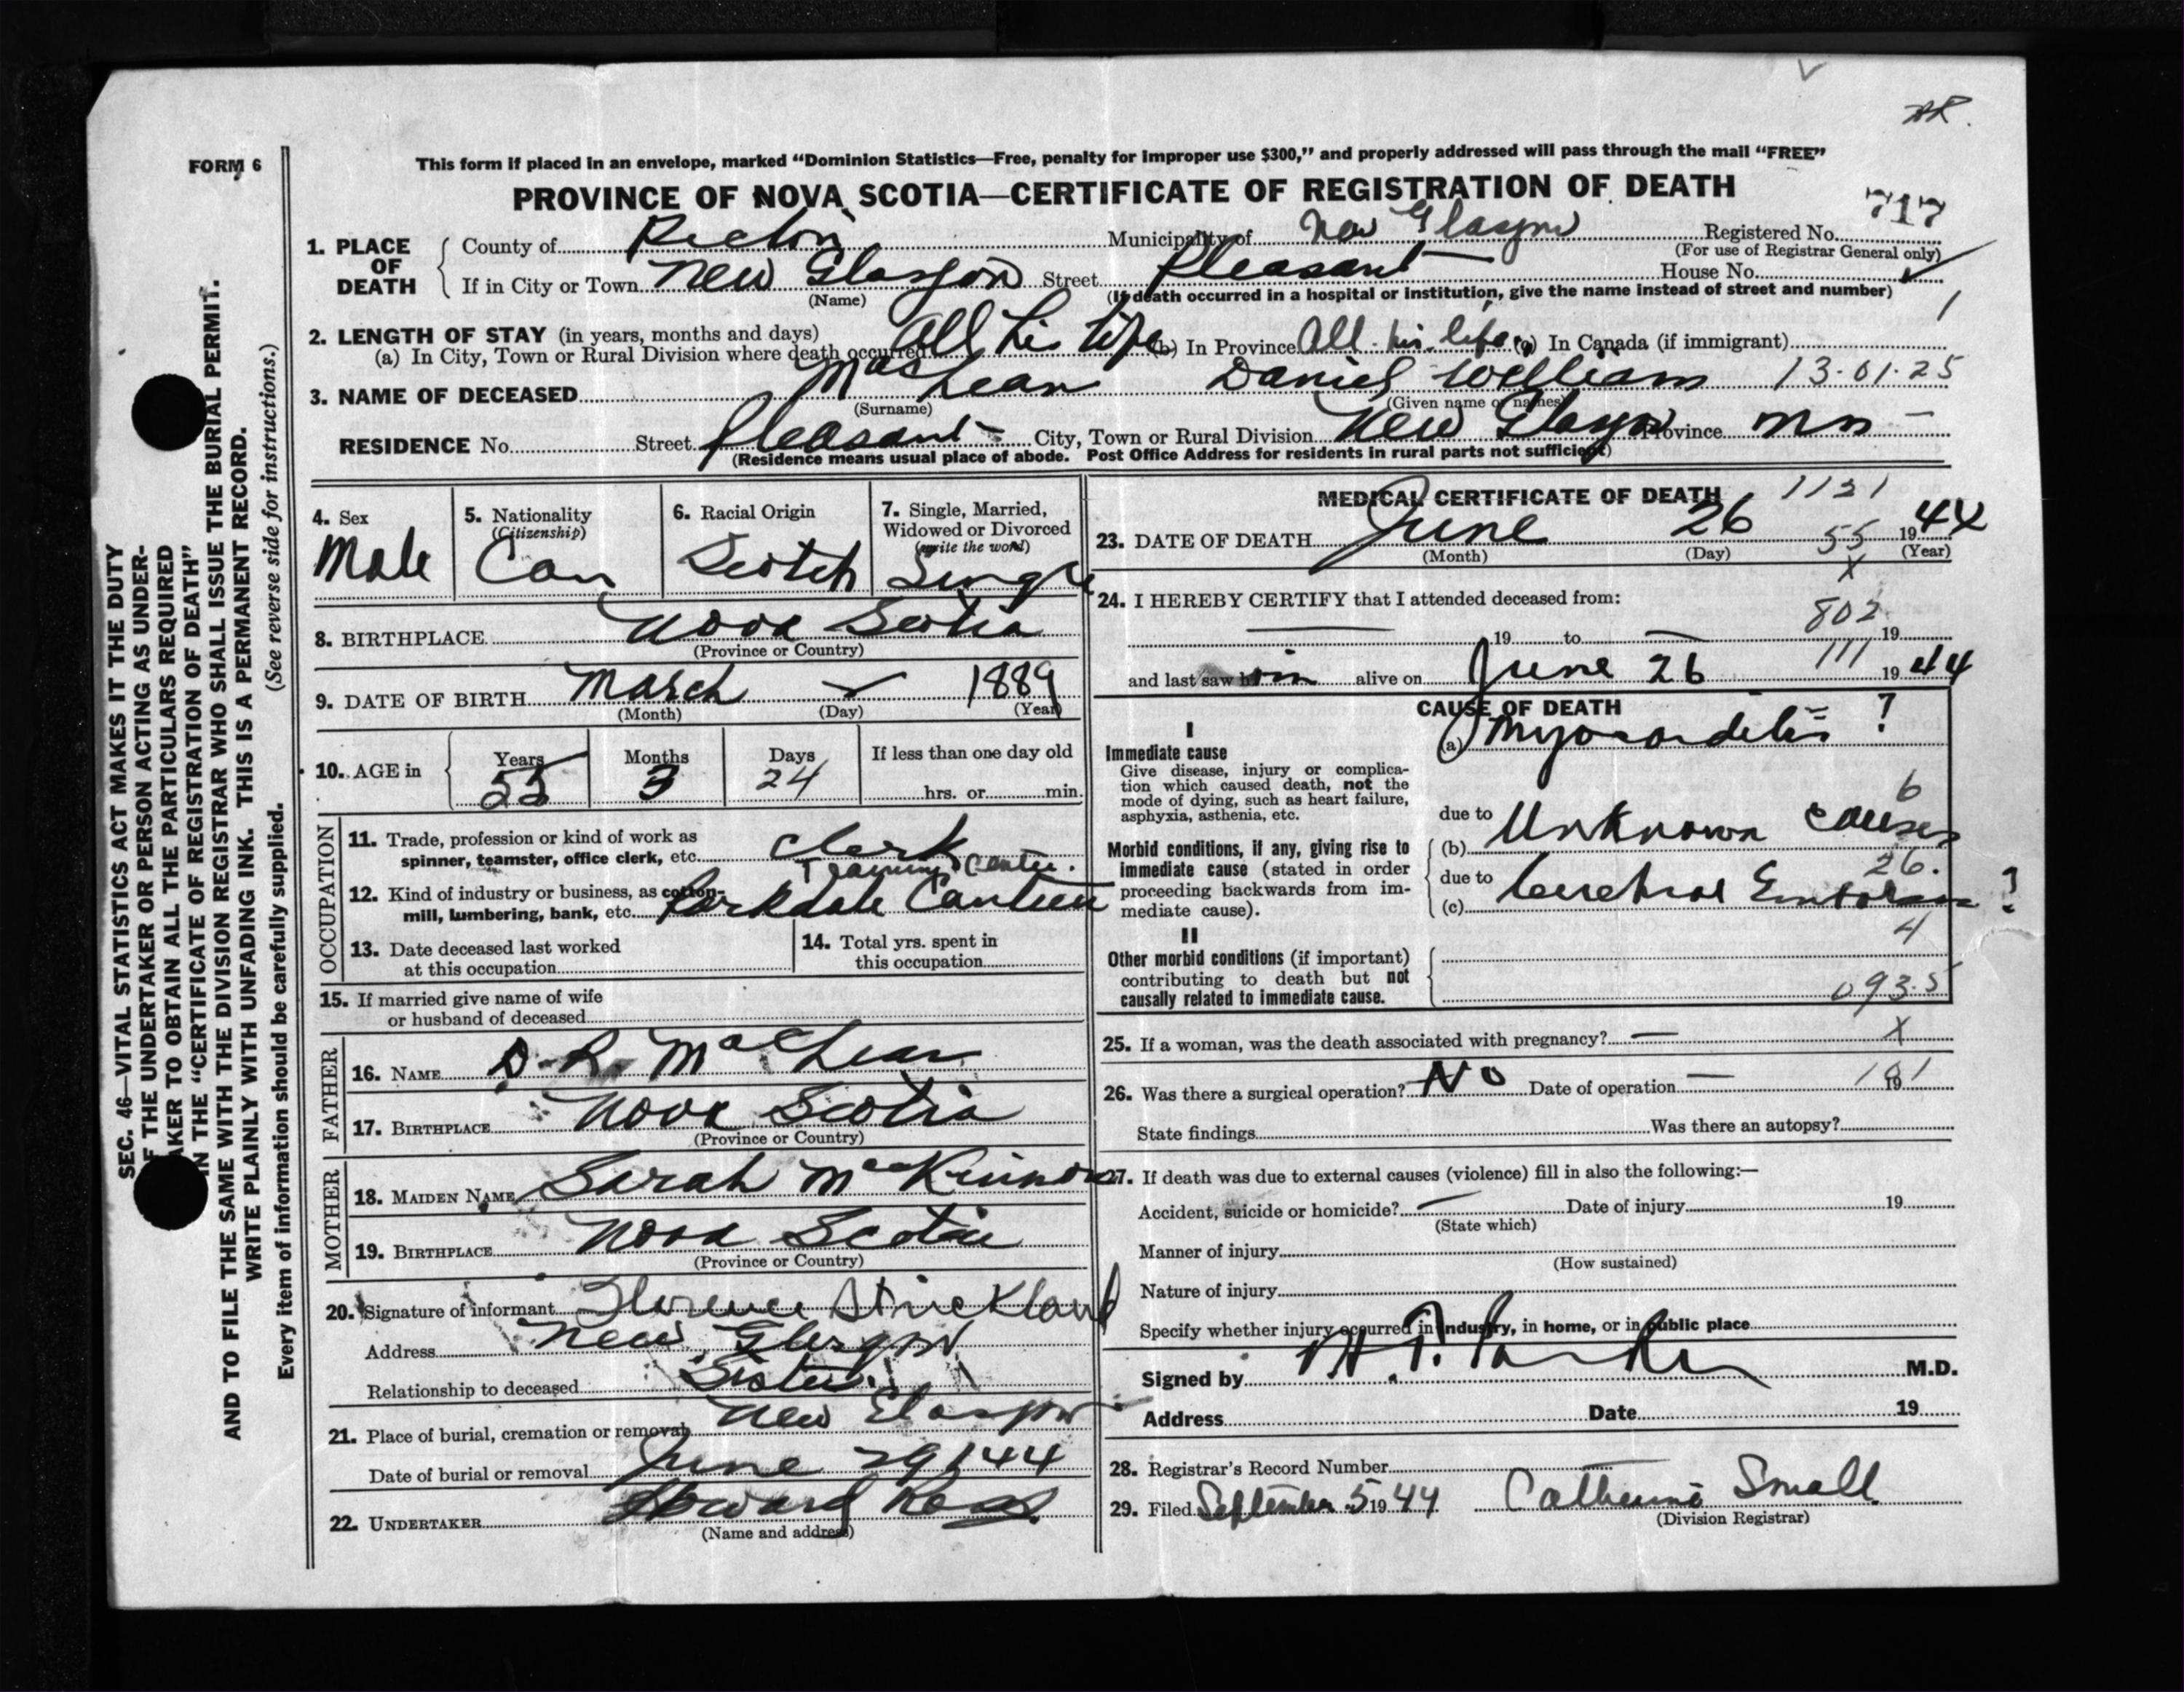 AR.
FORM 6
This form if placed in an envelope, marked “Dominion Statistics—Free, penalty for improper use $300,” and properly addressed will pass through the mail “FREE”
PROVINCE OF NOVA SCOTIA—CERTIFICATE OF REGISTRATION OF DEATH
717
1. PLACE OF DEATH County of Pictou Municipality of New Glasgow Registered No.
(For use of Registrar General only)
If in City or Town New Glasgow Street Pleasant House No.
(Name) (If death occurred in a hospital or institution, give the name instead of street and number)
1
2. LENGTH OF STAY (in years, months and days)
(a) In City, Town or Rural Division where death occurred All his life (b) In Province All his life (c) In Canada (if immigrant)
3. NAME OF DECEASED MacLean Daniel William 13.01.25
(Surname) (Given name or names)
RESIDENCE No. Street Pleasant City, Town or Rural Division New Glasgow Province
(Residence means usual place of abode. Post Office Address for residents in rural parts not sufficient)
4. Sex Male
5. Nationality (Citizenship) Can
6. Racial Origin Scotch
7. Single, Married, Widowed or Divorced (write the word) Single
8. BIRTHPLACE Nova Scotia
(Province or Country)
9. DATE OF BIRTH March 1889
(Month) (Day) (Year)
10. AGE in Years 55 Months 3 Days 24 If less than one day old
hrs. or min.
OCCUPATION
11. Trade, profession or kind of work as
spinner, teamster, office clerk, etc. Clerk
Training Centre.
12. Kind of industry or business, as cotton-
mill, lumbering, bank, etc. Parkdale Canteen
13. Date deceased last worked
at this occupation
14. Total yrs. spent in
this occupation
15. If married give name of wife
or husband of deceased
FATHER
16. NAME D. R. MacLean
17. BIRTHPLACE Nova Scotia
(Province or Country)
MOTHER
18. MAIDEN NAME Sarah McKinnon
19. BIRTHPLACE Nova Scotia
(Province or Country)
20. Signature of informant Florence Strickland
Address New Glasgow
Relationship to deceased Sister
21. Place of burial, cremation or removal New Glasgow
Date of burial or removal June 29/44
22. UNDERTAKER Howard Ross
(Name and address)
MEDICAL CERTIFICATE OF DEATH 1121
23. DATE OF DEATH June 26 55 1944
(Month) (Day) (Year)
X
24. I HEREBY CERTIFY that I attended deceased from:
802
19 to 19
111
and last saw him alive on June 26 1944
CAUSE OF DEATH
I
Immediate cause
Give disease, injury or complica-
tion which caused death, not the
mode of dying, such as heart failure,
asphyxia, asthenia, etc.
(a) Myocarditis ?
6
due to
(b) Unknown causes
26.
Morbid conditions, if any, giving rise to
immediate cause (stated in order
proceeding backwards from im-
mediate cause).
due to
(c) Cerebral Embolism ?
4
II
Other morbid conditions (if important)
contributing to death but not
causally related to immediate cause.
093.5
25. If a woman, was the death associated with pregnancy? X
26. Was there a surgical operation? No Date of operation 19
101
State findings Was there an autopsy?
27. If death was due to external causes (violence) fill in also the following:—
Accident, suicide or homicide? Date of injury 19
(State which)
Manner of injury
(How sustained)
Nature of injury
Specify whether injury occurred in industry, in home, or in public place
Signed by M.D.
Address Date 19
28. Registrar's Record Number
29. Filed September 5 1944 Catherine Small
(Division Registrar)
SEC. 46—VITAL STATISTICS ACT MAKES IT THE DUTY
OF THE UNDERTAKER OR PERSON ACTING AS UNDER-
TAKER TO OBTAIN ALL THE PARTICULARS REQUIRED
IN THE “CERTIFICATE OF REGISTRATION OF DEATH”
AND TO FILE THE SAME WITH THE DIVISION REGISTRAR WHO SHALL ISSUE THE BURIAL PERMIT.
WRITE PLAINLY WITH UNFADING INK. THIS IS A PERMANENT RECORD.
Every item of information should be carefully supplied. (See reverse side for instructions.)